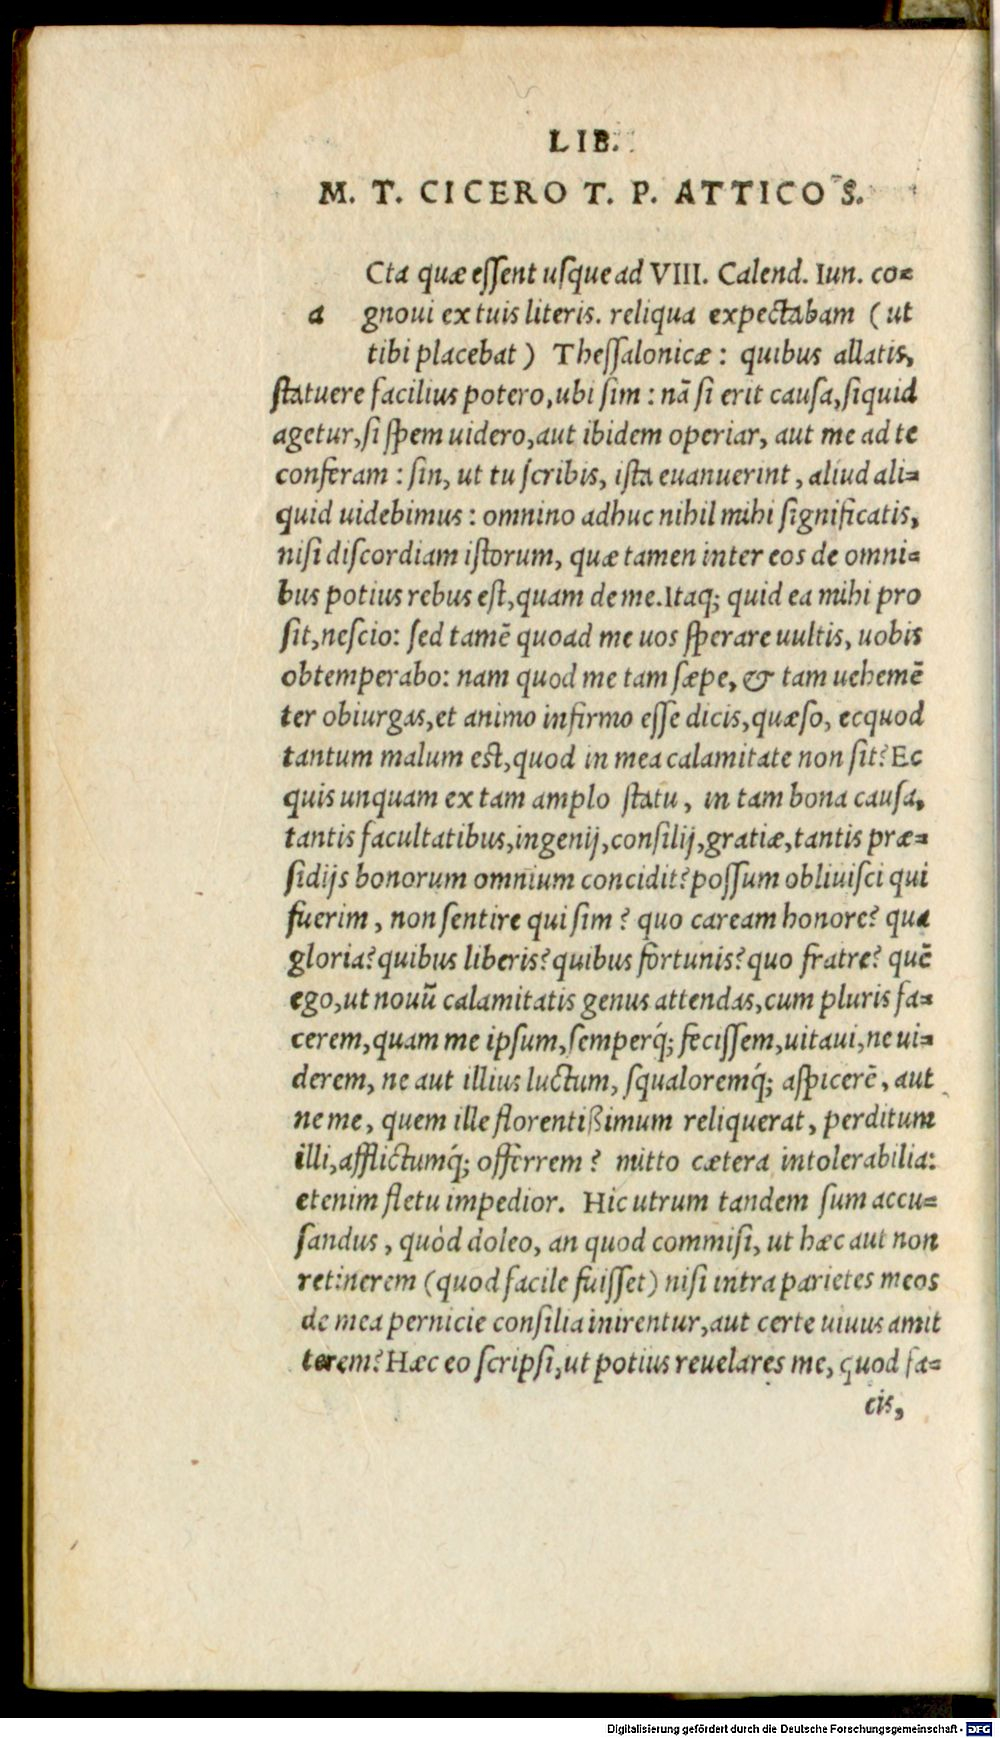 LIB.
M. T. CICERO T. P. ATTICO S.
Cta quæ eſſent uſque ad VIII. Calend. Iun. co-
a gnoui ex tuis literis. reliqua expectabam (ut
tibi placebat) Theſſalonicæ: quibus allatis,
ſtatuere facilius potero, ubi ſim: nã ſi erit cauſa, ſiquid
agetur, ſi ſpem uidero, aut ibidem operiar, aut me ad te
conferam: ſin, ut tu ſcribis, iſta euanuerint, aliud ali-
quid uidebimus: omnino adhuc nihil mihi ſignificatis,
niſi diſcordiam iſtorum, quæ tamen inter eos de omni-
bus potius rebus eſt, quam de me. Itaq; quid ea mihi pro
ſit, neſcio: ſed tamẽ quoad me uos ſperare uultis, uobis
obtemperabo: nam quod me tam ſæpe, & tam uehemẽ
ter obiurgas, et animo infirmo eſſe dicis, quæſo, ecquod
tantum malum est, quod in mea calamitate non ſit? Ec
quis unquam ex tam amplo ſtatu, in tam bona cauſa,
tantis facultatibus, ingenij, conſilij, gratiæ, tantis præ-
ſidijs bonorum omnium concidit? poſſum obliuiſci qui
fuerim, non ſentire qui ſim? quo caream honore? qua
gloria? quibus liberis? quibus fortunis? quo fratre? quẽ
ego, ut nouũ calamitatis genus attendas, cum pluris fa-
cerem, quam me ipſum, ſemperq́; feciſſem, uitaui, ne ui-
derem, ne aut illius luctum, ſqualoremq́; aſpicerẽ, aut
ne me, quem ille florentißimum reliquerat, perditum
illi, afflictumq́; offerrem? mitto cætera intolerabilia:
etenim fletu impedior. Hic utrum tandem ſum accu-
ſandus, quòd doleo, an quod commiſi, ut hæc aut non
retinerem (quod facile fuiſſet) niſi intra parietes meos
de mea pernicie conſilia inirentur, aut certe uiuus amit
terem? Hæc eo ſcripſi, ut potius reuelares me, quod fa-
cis,
Digitalisierung gefördert durch die Deutsche Forschungsgemeinschaft - DFG